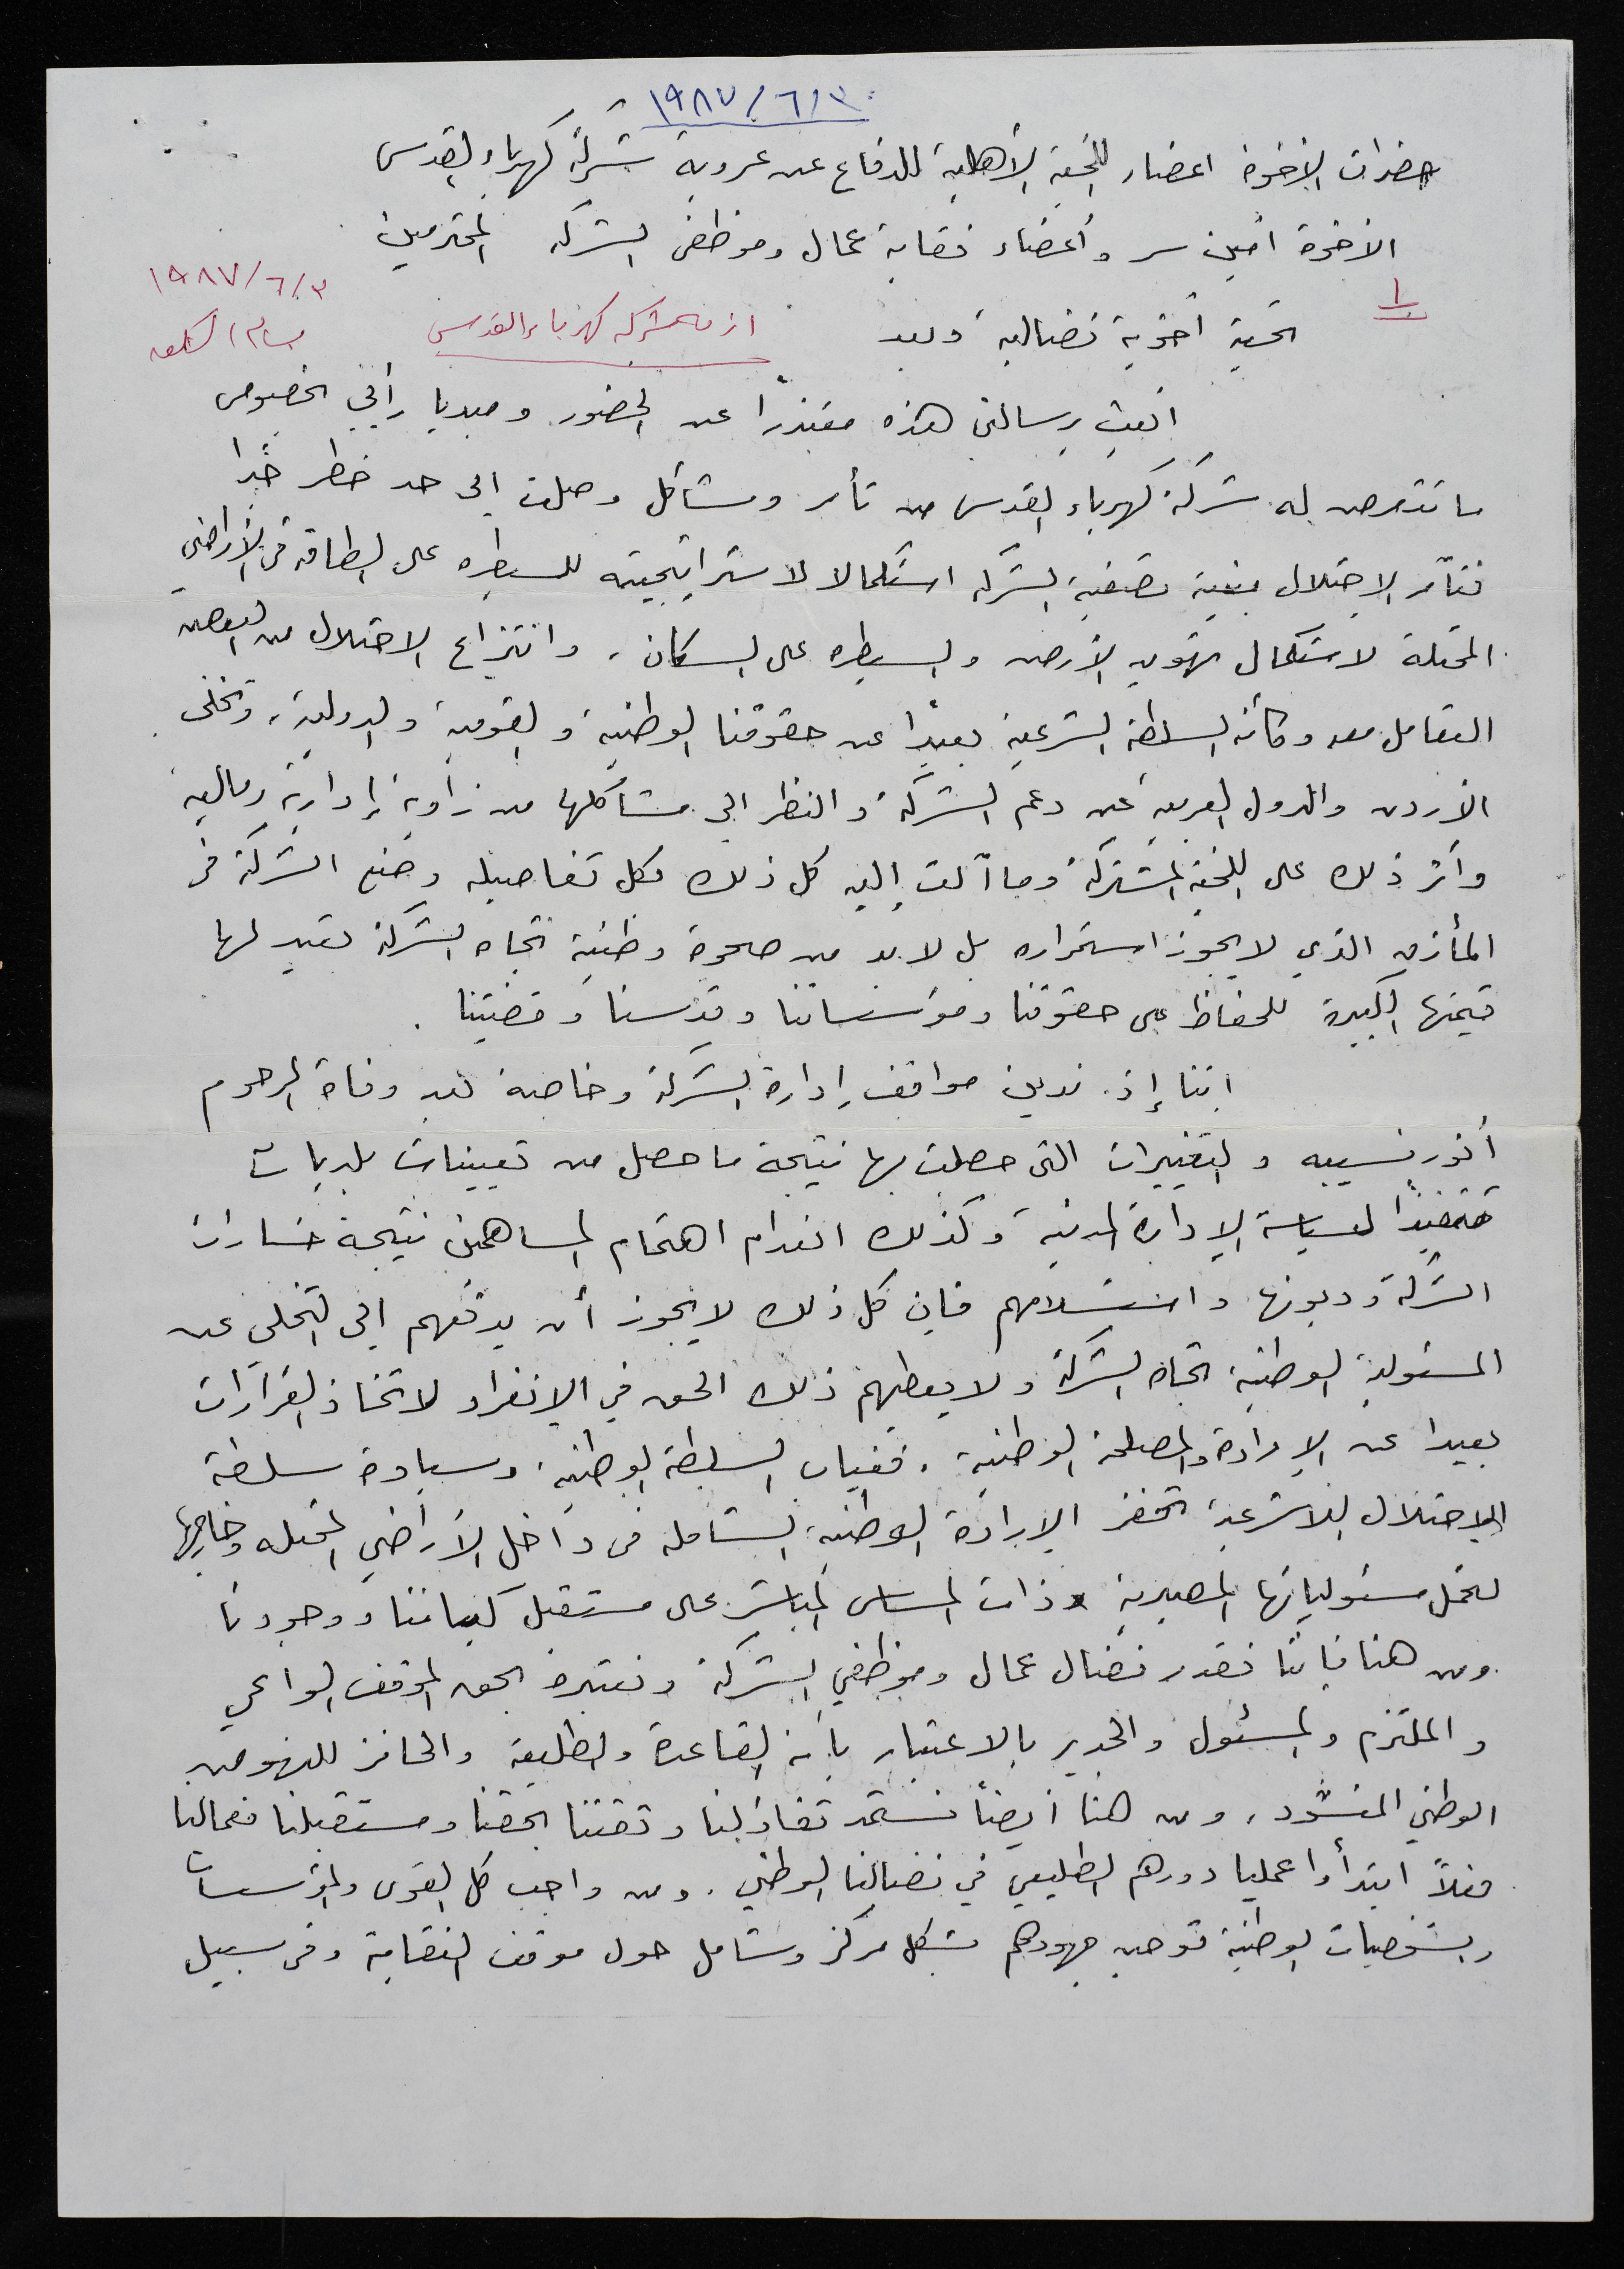 ١٩٨٧/٦/٣
حضرات الاخوة اعضاء اللجنة الأهلية للدفاع عن عروبة شركة كهرباء القدس
الاخوة امين سر وأعضاء نقابة عمال وموظفي الشركة المحترمين
١٩٨٧/٦/٣
١
تحية أخوية نضالية وبعد
ازمة شركة كهرباء القدس
بسام الشكعه
ابعث برسالتي هذه معتذراً عن الحضور ومبديا رأيي بخصوص
ما تتعرض له شركة كهرباء القدس من تآمر ومشاكل وصلت الى حد خطر جدا
فتآمر الاحتلال بغية تصفية الشركة استكمالا لاستراتيجيته للسيطره على الطاقة في الأراضي
المحتلة لاستكمال تهويد الأرض والسيطره على السكان، وانتزاع الاحتلال من البعض
التعامل معه وكأنه السلطة الشرعية بعيدًا عن حقوقنا الوطنية والقومية والدولية، وتخلى
الأردن والدول العربية عن دعم الشركة والنظر الى مشاكلها من زاوية إدارية ومالية
وأثر ذلك على اللجنة المشتركة وما آلت إليه كل ذلك بكل تفاصيله وضع الشركة في
المأزق الذي لا يجوز استمراره بل لا بد من صحوة وطنية تجاه الشركة تعيد لها
قيمتها الكبيرة للحفاظ على حقوقنا ومؤسساتنا وقدسنا وقضيتنا.
اننا إذ ندين مواقف إدارة الشركة وخاصة بعد وفاة المرحوم
أنور نسيبه والتغييرات التي حصلت بها نتيجة ما حصل من تعيينات بلديات
تنفيذًا لسياسة الإدارة المدنية وكذلك انعدام اهتمام المساهمين نتيجة خسارات
الشركة وديونها واستسلامهم فإن كل ذلك لا يجوز أن يدفعهم الى التخلي عن
المسئولية الوطنية تجاه الشركة ولا يعطيهم ذلك الحق في الانفراد لاتخاذ القرارات
بعيدا عن الإرادة والمصلحة الوطنية. فغياب السلطة الوطنية. وسيادة سلطة
الاحتلال اللاشرعية تحفز الإرادة الوطنية الشاملة في داخل الأراضي المحتله وخارجها
لتحمل مسئولياتها المصيرية ذات المساس المباشر على مستقبل كياننا ووجودنا
ومن هنا فإننا نقدر نضال عمال وموظفي الشركة ونعتبره بحق الموقف الواعي
والملتزم والمسئول والجدير بالاعتبار بأنه القاعدة والطليعة والحافز للنهوض
الوطني المنشود، ومن هنا أيضاً نستمد تفاؤلنا وثقتنا بحقنا ومستقبلنا فعمالنا
فعلاً ابتدأوا عمليا دورهم الطليعي في نضالنا الوطني. ومن واجب كل القوى والمؤسسات
والشخصيات الوطنية توحيد جهودهم بشكل مركز وشامل حول موقف النقابة وفي سبيل